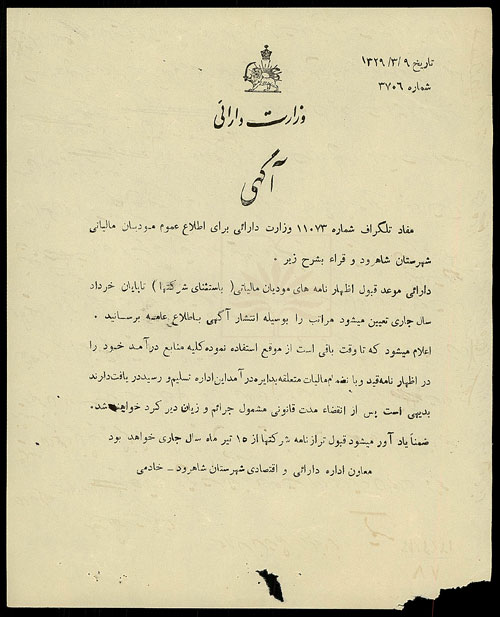 تاریخ ۱۳۲۹/۳/۹
شماره ۳۷۰۶
وزارت دارائی
آگهی
مفاد تلگراف شماره ۱۱۰۷۳ وزارت دارائی برای اطلاع عموم مودیان مالیاتی
شهرستان شاهرود و قراء بشرح زیر .
دارائی موعد قبول اظهار نامه های مودیان مالیاتی( باستثنای شرکتها ) تاپایان خرداد
سال جاری تعیین میشود مراتب را بوسیله انتشار آگهی باطلاع عامه برسانید .
اعلام میشود که تا وقت باقی است از موقع استفاده نموده کلیه منابع درآمد خود را
در اظهار نامه قید و با نضمام مالیات متعلقه بدایره درآمد این اداره تسلیم و رسید دریافت دارند
بدیهی است پس از انقضاء مدت قانونی مشمول جرائم و زیان دیر کرد خواهند شد.
ضمناً یاد آور میشود قبول تراز نامه شرکتها از ۱۵ تیر ماه سال جاری خواهد بود
معاون اداره دارائی و اقتصادی شهرستان شاهرود ـ خادمی